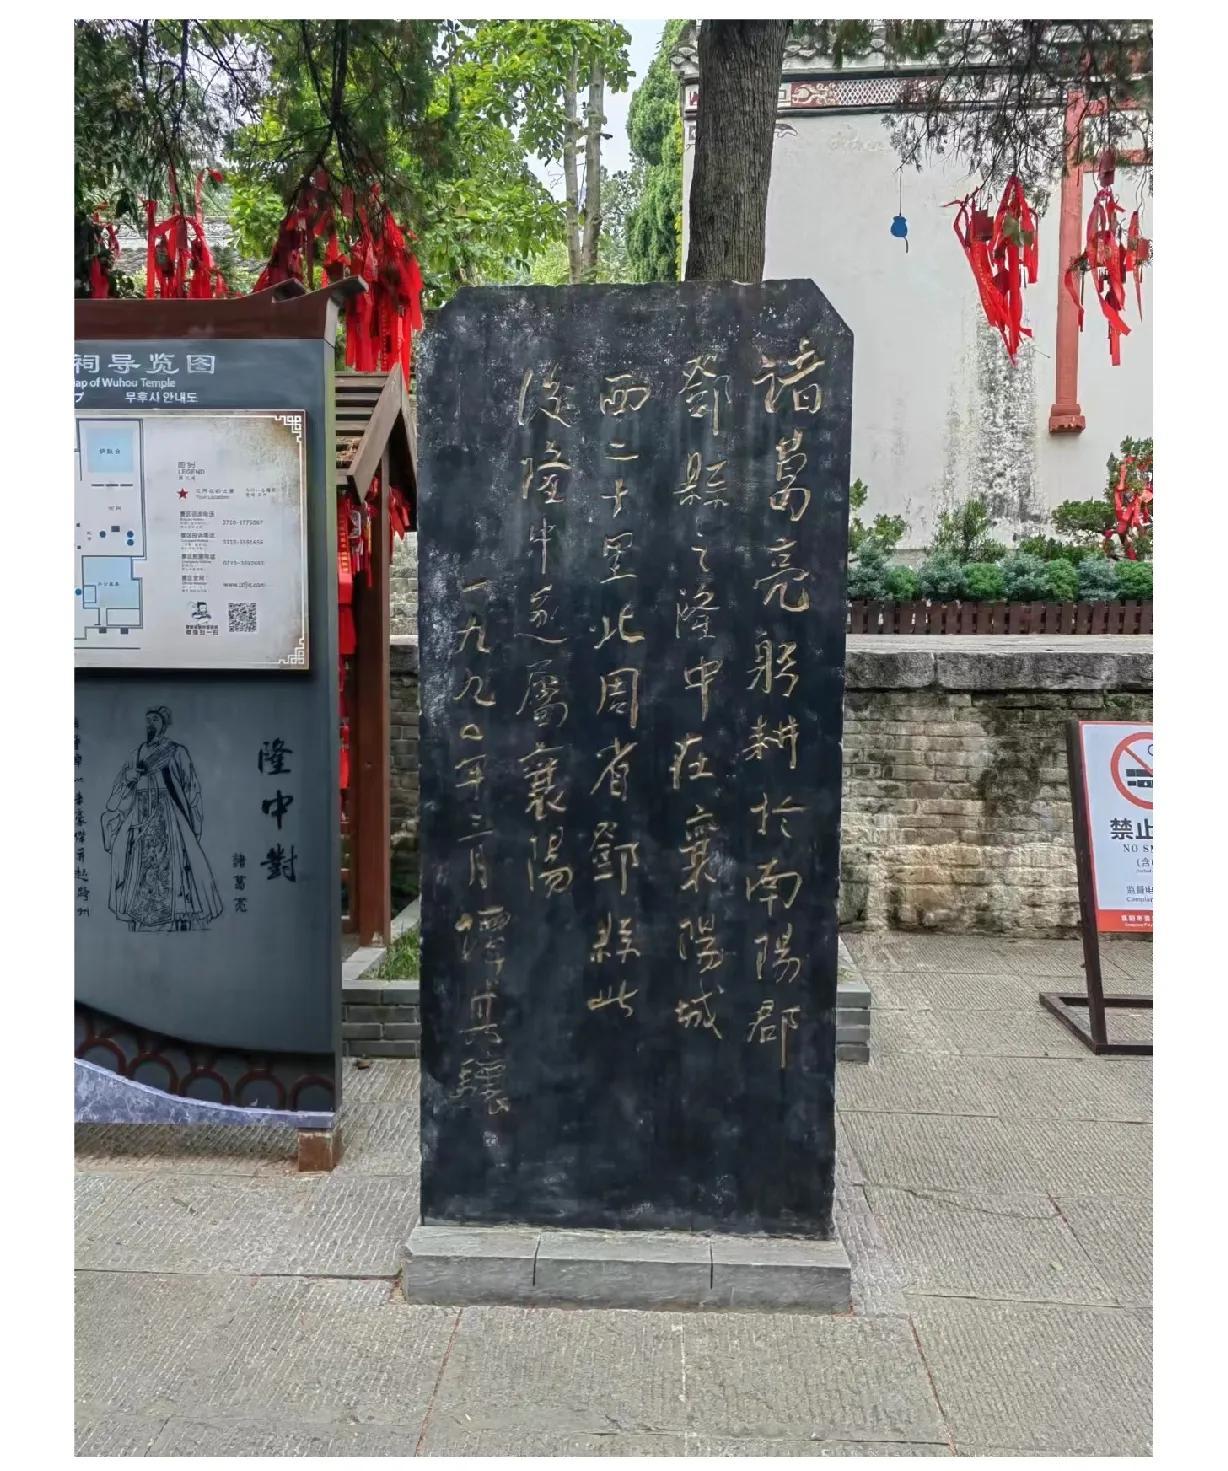 诸葛亮躬耕於南陽郡
鄧縣之隆中在襄陽城
西二十里北周省鄧縣此
後隆中遂屬襄陽
一九九〇年三月譚其驤
祠导览图
Map of Wuhou Temple
무후사 안내도
图例
LEGEND
www.zlfjc.com
隆中對
諸葛亮
禁止
NO SM